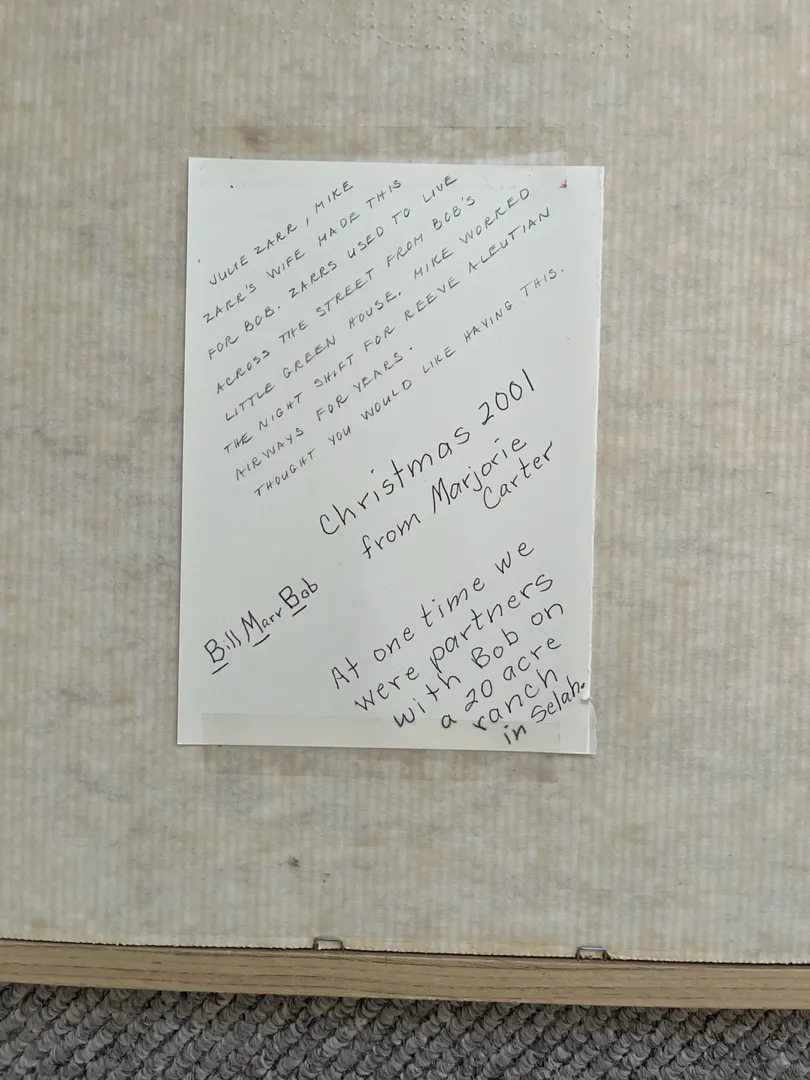 JULIE ZARR, MIKE
ZARR'S WIFE MADE THIS
FOR BOB. ZARRS USED TO LIVE
ACROSS THE STREET FROM BOB'S
LITTLE GREEN HOUSE. MIKE WORKED
THE NIGHT SHIFT FOR REEVE ALEUTIAN
AIRWAYS FOR YEARS.
THOUGHT YOU WOULD LIKE HAVING THIS.
Christmas 2001
from Marjorie
Carter
Bill Marr Bob
At one time we
were partners
with Bob on
a 20 acre
ranch
in Selah.